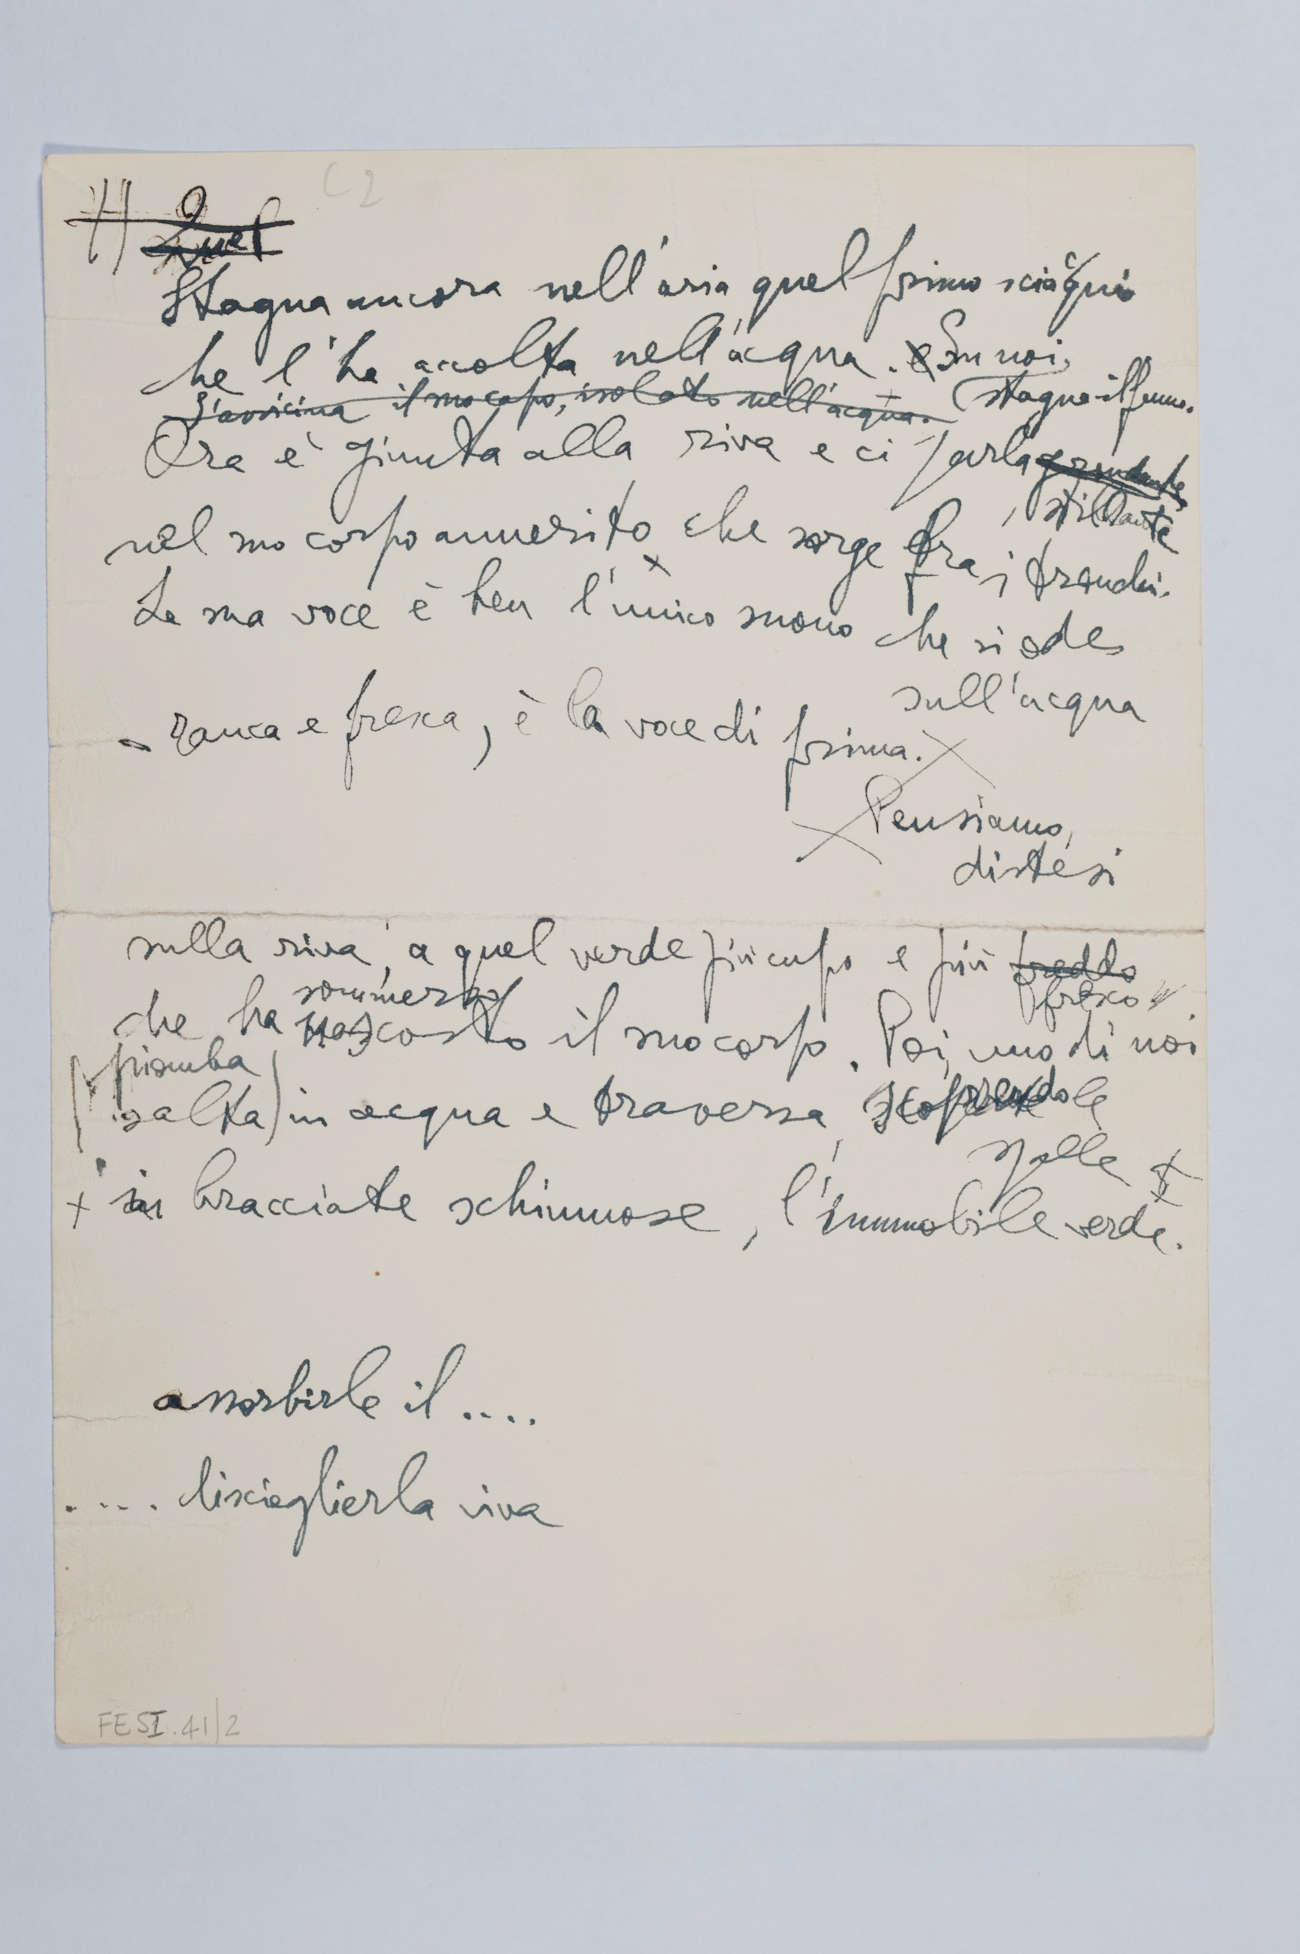 C2
H) Quel
Stagna ancora nell'aria quel primo sciacquio
che l'ha accolta nell'acqua. e Su noi,
stagna il fiume.
S'avvicina il suo capo, isolato nell'acqua.
Ora è giunta alla riva e ci parla grondante
, stillante
nel suo corpo annerito che sorge fra i tronchi.
La sua voce è ben l'unico suono che si ode
sull'acqua
– rauca e fresca, è la voce di prima.
Pensiamo,
distesi
sulla riva, a quel verde più cupo e più freddo
fresco
sommerso
che ha nascosto il suo corpo. Poi, uno di noi
piomba
(salta) in acqua e traversa, scoprendo le
spalle
in bracciate schiumose, l'immobile verde.
assorbirle il ....
..... discioglierla viva
FE SI.41/2